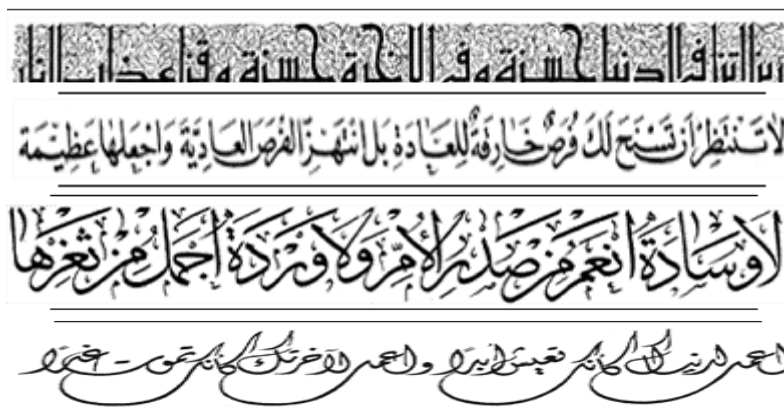 ربنا آتنا في الدنيا حسنة وفي الآخرة حسنة وقنا عذاب النار
لَا تَنْتَظِرْ اَنْ تَسْنَحَ لَكَ فُرَصٌ خَارِقَةٌ لِلْعَادَةِ بَلْ اِنْتَهِزِ الفُرَصَ العَادِيَّةَ وَاجْعَلْهَا عَظِيْمَة
لَا وِسَادَةَ أَنْعَمُ مِنْ صَدْرِ الْأُمِّ وَلَا وَرْدَةَ أَجْمَلُ مِنْ ثَغْرِهَا
اعمل لدنياك كأنك تعيش أبدا واعمل لآخرتك كأنك تموت غدا